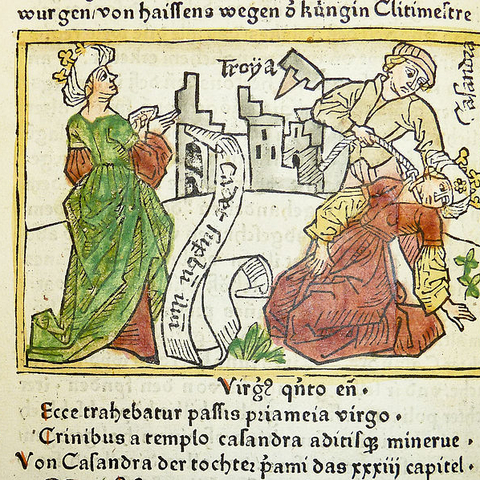 wurgen/von haissens wegen ð küngin Clitimestre
Troÿa
Casandra
Virgꝫ qͥnto eñ.
Ecce trahebatur passis priameia virgo.
Crinibus a templo casandra aditisqꝫ minerue.
Von Casandra der tochter p̄ami das xxxiij capitel.